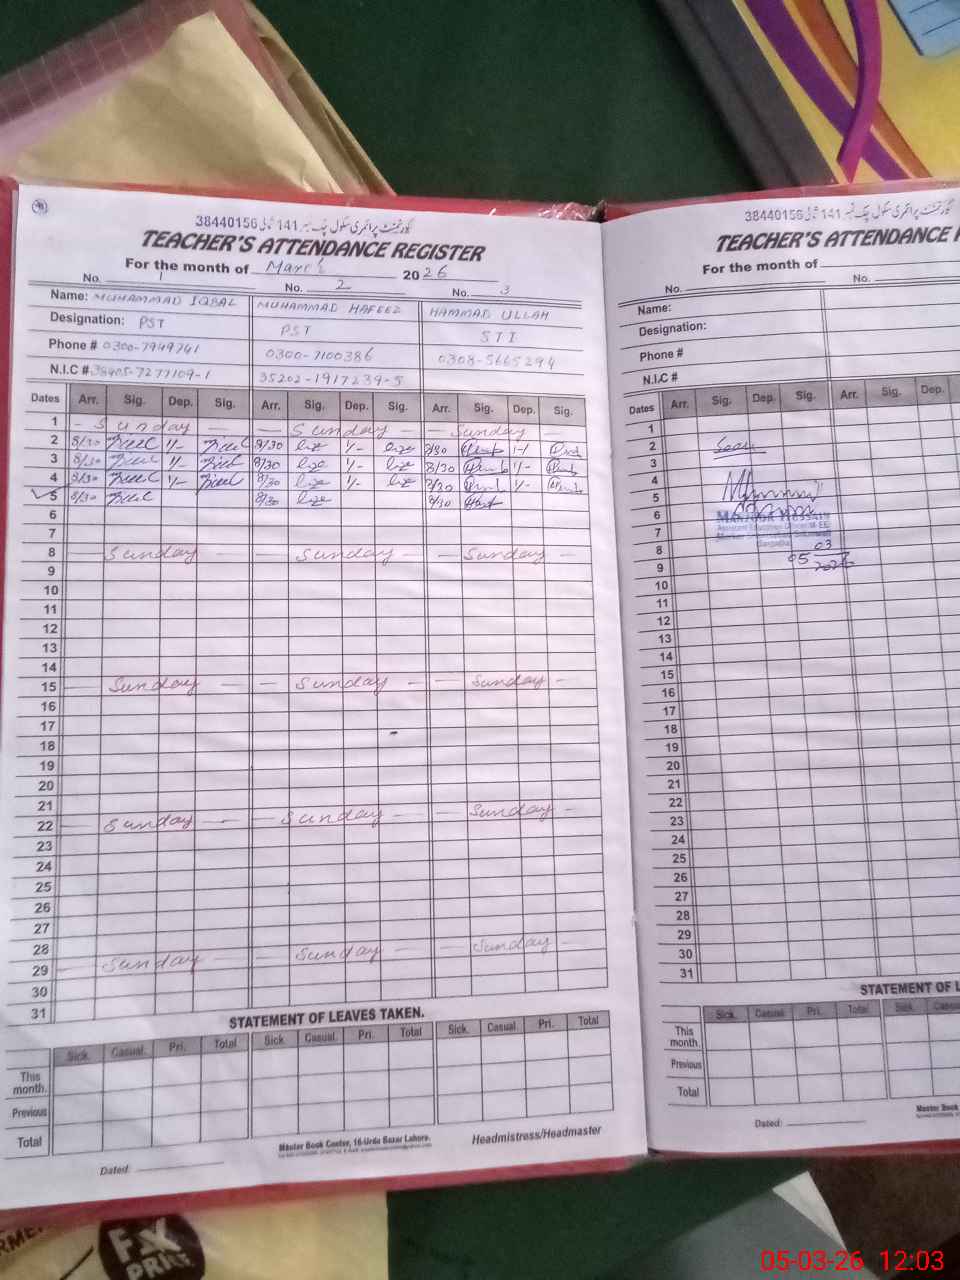 گورنمنٹ پرائمری سکول چک نمبر 141 شمالی 38440156
TEACHER'S ATTENDANCE REGISTER
For the month of March 2026
No. 1 No. 2 No. 3
Name: MUHAMMAD IQBAL MUHAMMAD HAFEEZ HAMMAD ULLAH
Designation: PST PST STI
Phone # 0300-7949741 0300-7100386 0308-5665294
N.I.C # 38405-7277109-1 35202-1917239-5
Dates Arr. Sig. Dep. Sig. Arr. Sig. Dep. Sig. Arr. Sig. Dep. Sig.
1 - Sunday - - Sunday - - Sunday
2 8/30 1/- 8/30 1/- 8/30 1-/
3 8/30 1/- 8/30 1/- 8/30 1/-
4 8/30 1/- 8/30 1/- 8/30 1/-
5 8/30 8/30 8/30
6
7
8 - Sunday - - Sunday - - Sunday -
9
10
11
12
13
14
15 - Sunday - - Sunday - - Sunday -
16
17
18
19
20
21
22 - Sunday - - Sunday - - Sunday -
23
24
25
26
27
28
29 - Sunday - - Sunday - - Sunday -
30
31
STATEMENT OF LEAVES TAKEN.
Sick. Casual. Pri. Total Sick. Casual. Pri. Total Sick. Casual. Pri. Total
This month.
Previous
Total
Dated:
Master Book Center, 16-Urdu Bazar Lahore.
Headmistress/Headmaster
گورنمنٹ پرائمری سکول چک نمبر 141 شمالی 38440156
TEACHER'S ATTENDANCE
For the month of
No. No.
Name:
Designation:
Phone #
N.I.C #
Dates Arr. Sig. Dep. Sig. Arr. Sig. Dep.
1
2 Seen
3
4
5
6 HUSSAIN
7 Assistant Education Officer
8
05 03 2026
9
10
11
12
13
14
15
16
17
18
19
20
21
22
23
24
25
26
27
28
29
30
31
STATEMENT OF
Sick. Casual. Pri. Total Sick.
This month.
Previous
Total
Dated:
Master Book
FX
PRICE
05-03-26 12:03